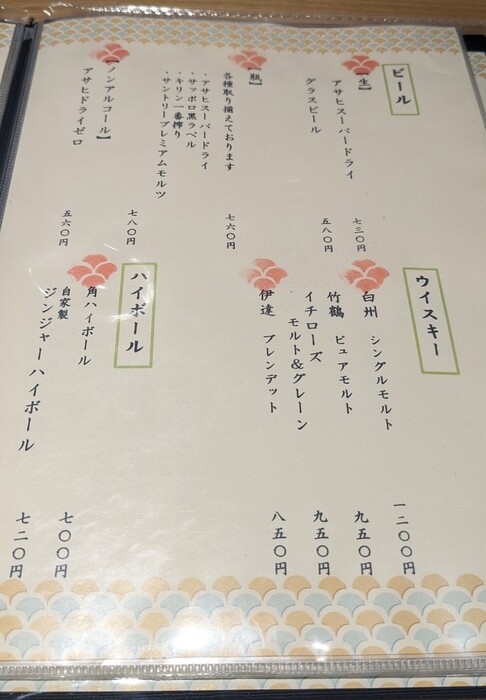 ビール
【生】
アサヒスーパードライ 七三〇円
グラスビール 五八〇円
【瓶】
各種取り揃えております 七六〇円
・アサヒスーパードライ
・サッポロ黒ラベル
・キリン一番搾り
・サントリープレミアムモルツ 七八〇円
【ノンアルコール】
アサヒドライゼロ 五六〇円
ウイスキー
白州 シングルモルト 一二〇〇円
竹鶴 ピュアモルト 九五〇円
イチローズ
モルト&グレーン 九五〇円
伊達 ブレンデット 八五〇円
ハイボール
角ハイボール 七〇〇円
自家製
ジンジャーハイボール 七二〇円